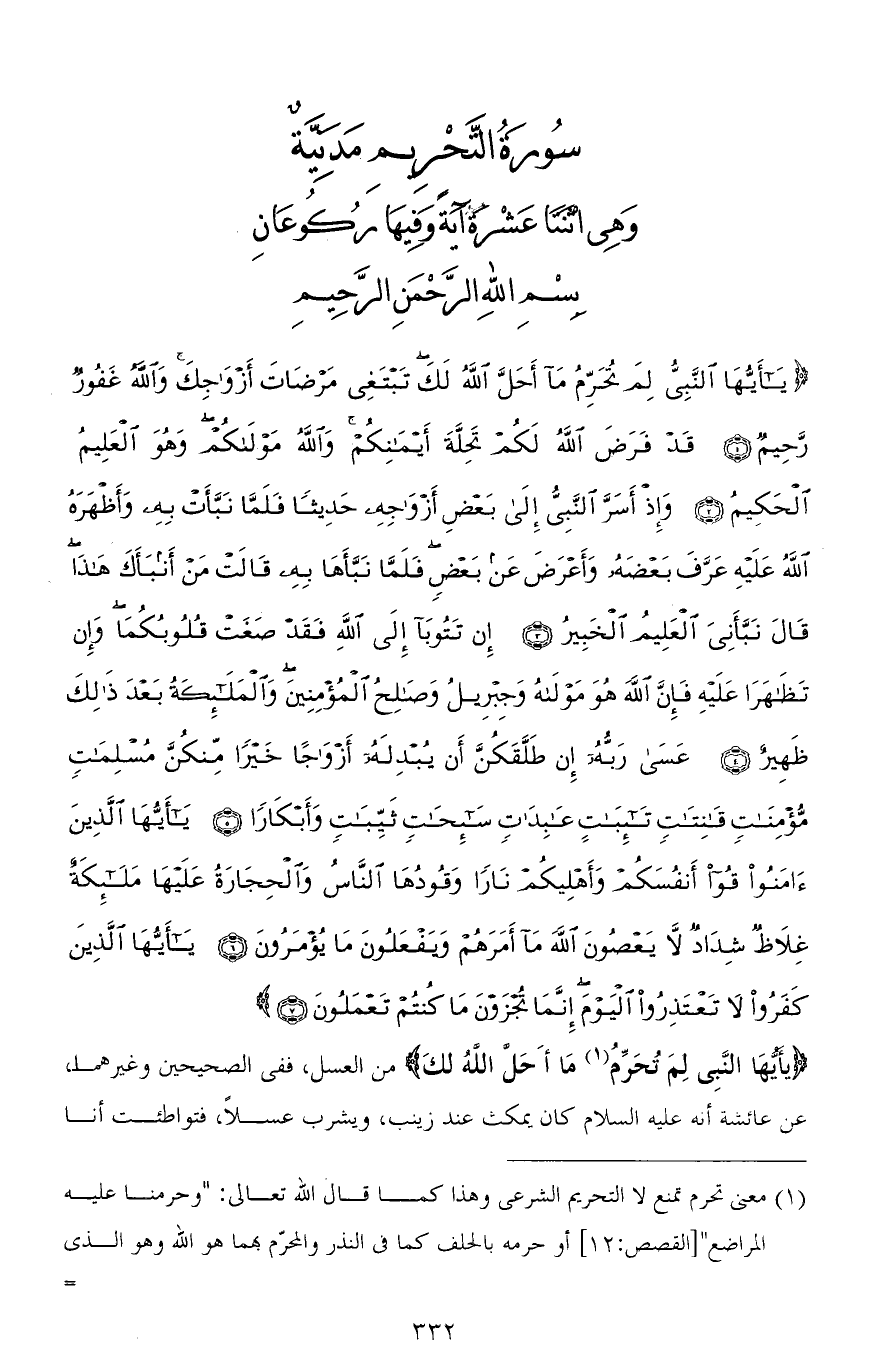 سُورَةُ التَّحْرِيمِ مَدَنِيَّةٌ
وَهِيَ اثْنَتَا عَشْرَةَ آيَةً وَفِيهَا رُكُوعَانِ
بِسْمِ اللهِ الرَّحْمَنِ الرَّحِيمِ
﴿ يَـٰٓأَيُّهَا ٱلنَّبِىُّ لِمَ تُحَرِّمُ مَآ أَحَلَّ ٱللَّهُ لَكَ ۖ تَبْتَغِى مَرْضَاتَ أَزْوَٰجِكَ ۚ وَٱللَّهُ غَفُورٌ
رَّحِيمٌ ١ قَدْ فَرَضَ ٱللَّهُ لَكُمْ تَحِلَّةَ أَيْمَـٰنِكُمْ ۚ وَٱللَّهُ مَوْلَىٰكُمْ ۖ وَهُوَ ٱلْعَلِيمُ
ٱلْحَكِيمُ ٢ وَإِذْ أَسَرَّ ٱلنَّبِىُّ إِلَىٰ بَعْضِ أَزْوَٰجِهِۦ حَدِيثًا فَلَمَّا نَبَّأَتْ بِهِۦ وَأَظْهَرَهُ
ٱللَّهُ عَلَيْهِ عَرَّفَ بَعْضَهُۥ وَأَعْرَضَ عَنۢ بَعْضٍ ۖ فَلَمَّا نَبَّأَهَا بِهِۦ قَالَتْ مَنْ أَنۢبَأَكَ هَـٰذَا ۖ
قَالَ نَبَّأَنِىَ ٱلْعَلِيمُ ٱلْخَبِيرُ ٣ إِن تَتُوبَآ إِلَى ٱللَّهِ فَقَدْ صَغَتْ قُلُوبُكُمَا ۖ وَإِن
تَظَـٰهَرَا عَلَيْهِ فَإِنَّ ٱللَّهَ هُوَ مَوْلَىٰهُ وَجِبْرِيلُ وَصَـٰلِحُ ٱلْمُؤْمِنِينَ ۖ وَٱلْمَلَـٰٓئِكَةُ بَعْدَ ذَٰلِكَ
ظَهِيرٌ ٤ عَسَىٰ رَبُّهُۥٓ إِن طَلَّقَكُنَّ أَن يُبْدِلَهُۥٓ أَزْوَٰجًا خَيْرًا مِّنكُنَّ مُسْلِمَـٰتٍ
مُّؤْمِنَـٰتٍ قَـٰنِتَـٰتٍ تَـٰٓئِبَـٰتٍ عَـٰبِدَٰتٍ سَـٰٓئِحَـٰتٍ ثَيِّبَـٰتٍ وَأَبْكَارًا ٥ يَـٰٓأَيُّهَا ٱلَّذِينَ
ءَامَنُوا۟ قُوٓا۟ أَنفُسَكُمْ وَأَهْلِيكُمْ نَارًا وَقُودُهَا ٱلنَّاسُ وَٱلْحِجَارَةُ عَلَيْهَا مَلَـٰٓئِكَةٌ
غِلَاظٌ شِدَادٌ لَّا يَعْصُونَ ٱللَّهَ مَآ أَمَرَهُمْ وَيَفْعَلُونَ مَا يُؤْمَرُونَ ٦ يَـٰٓأَيُّهَا ٱلَّذِينَ
كَفَرُوا۟ لَا تَعْتَذِرُوا۟ ٱلْيَوْمَ ۖ إِنَّمَا تُجْزَوْنَ مَا كُنتُمْ تَعْمَلُونَ ٧ ﴾
﴿يأَيُّهَا النَّبِي لِمَ تُحَرِّمُ(١) مَا أَحَلَّ اللَّهُ لَكَ﴾ من العسل، ففى الصحيحين وغيرهما،
عن عائشة أنه عليه السلام كان يمكث عند زينب، ويشرب عسلاً، فتواطئت أنا
(١) معنى تحرم تمنع لا التحريم الشرعى وهذا كما قال الله تعالى: "وحرمنا عليه
المراضع"[القصص:١٢] أو حرمه بالحلف كما فى النذر والمحرّم بهما هو الله وهو الذى
=
٣٣٢